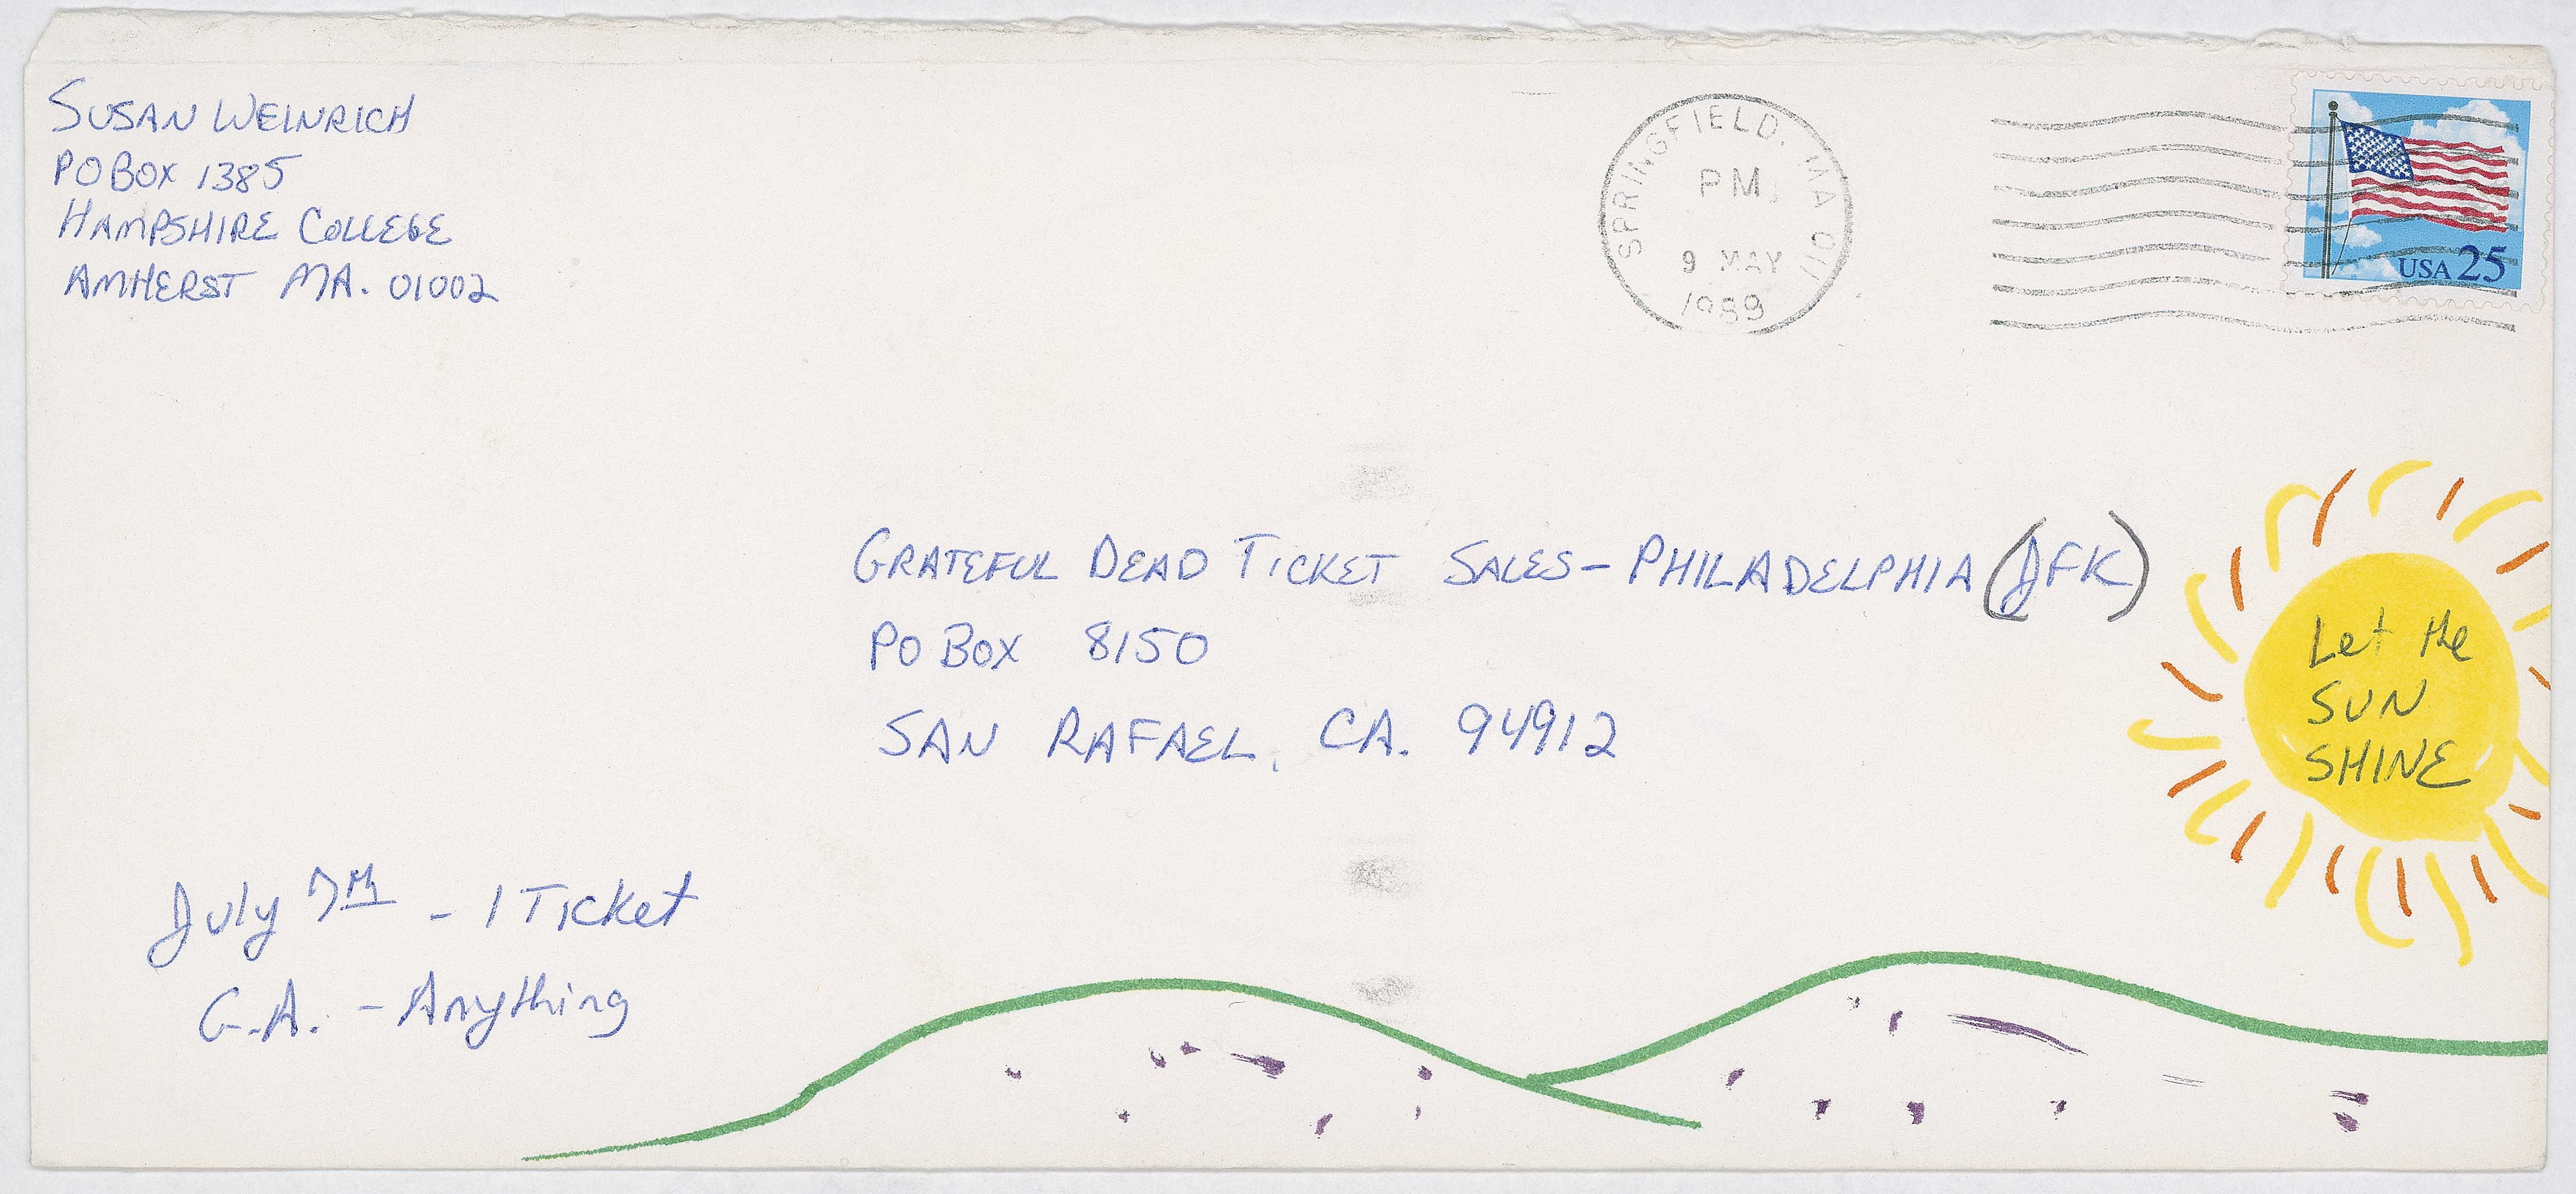 SUSAN WEINRICH
PO BOX 1385
HAMPSHIRE COLLEGE
AMHERST MA. 01002
SPRINGFIELD, MA 011
PM
9 MAY
1989
USA 25
GRATEFUL DEAD TICKET SALES - PHILADELPHIA (JFK)
PO BOX 8150
SAN RAFAEL, CA. 94912
Let the
SUN
SHINE
July 7th - 1 Ticket
G.A. - Anything